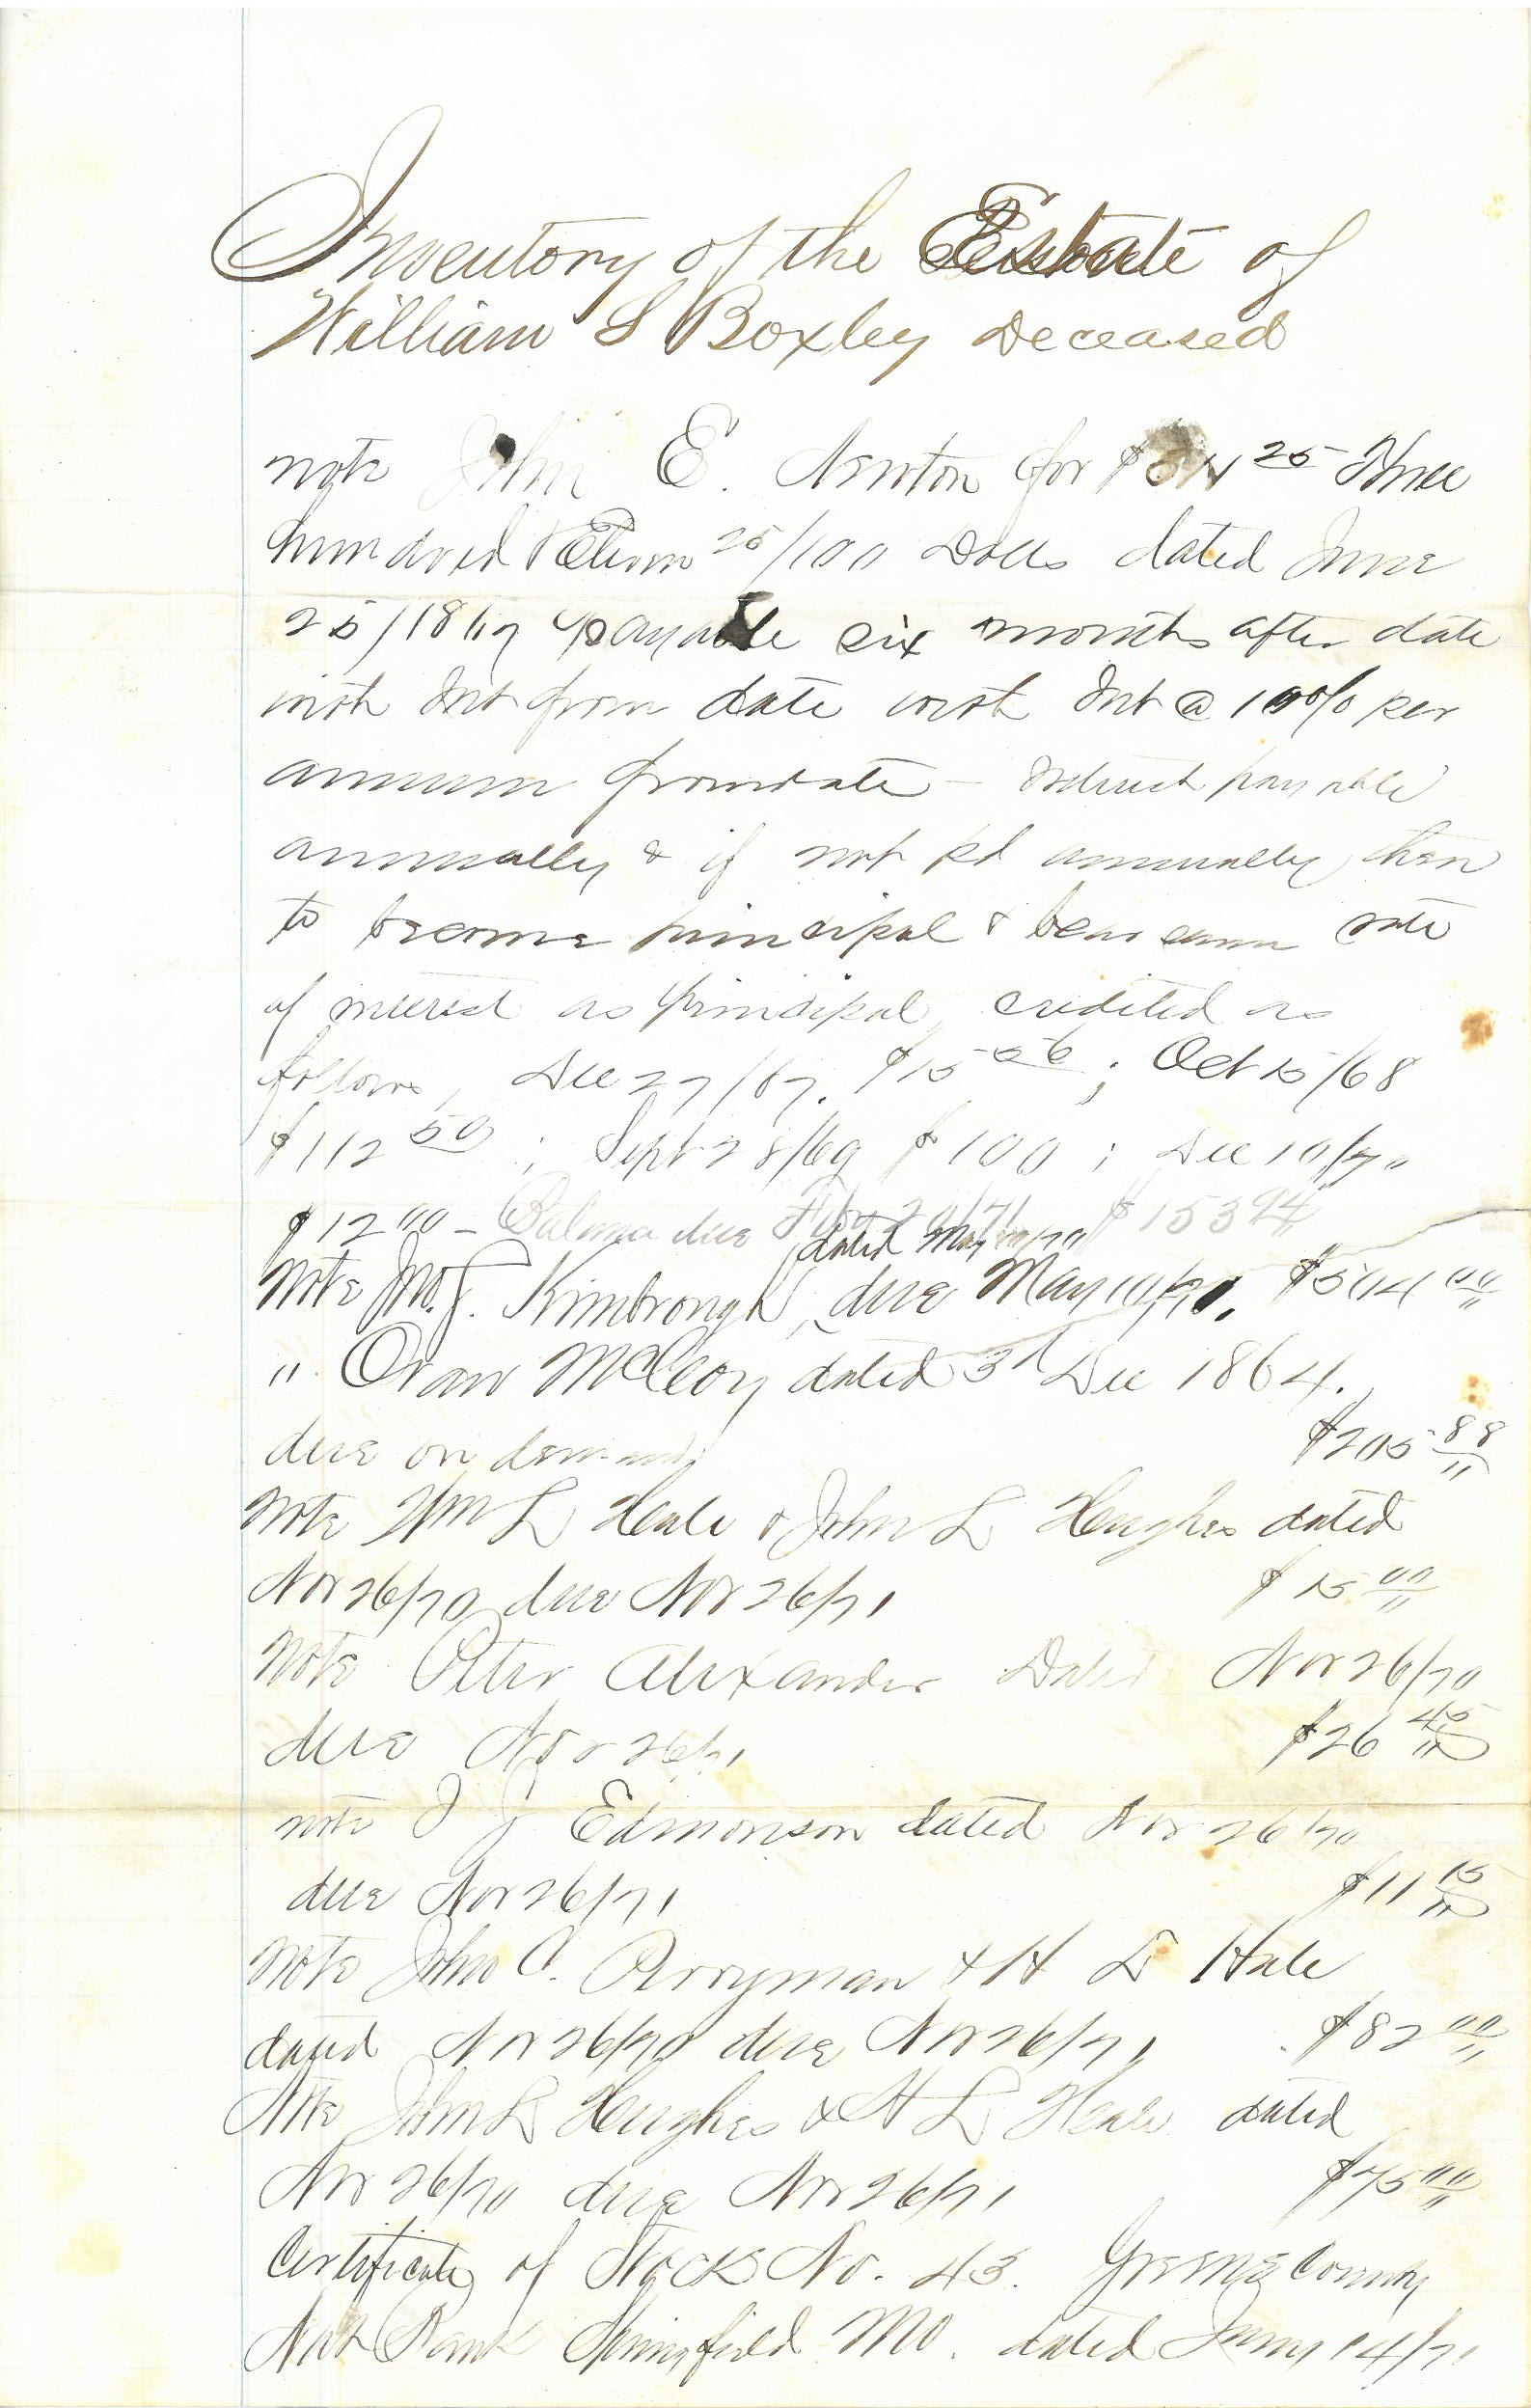 Inventory of the Estate of
William S Boxley Deceased
note John E. Newton for $ 25 Three
hundred & Eleven 25/100 Dolls dated June
25/1867 payable six months after date
with Int from date with Int @ 10% per
annum from date - Interest payable
annually & if not pd annually then
to become principal & bear same rate
of interest as principal, credited as
follows, Dec 27/67. $15 56 ; Oct 15/68
$112 50 ; Sept 28/69 $100 ; Dec 10/70
$12 00 - Balance due Feby 20/71 $153 94
dated May 10/70
Note Jno. J. Kimbrough, due May 10/71. $504 00
" McCleoy dated 3d Dec 1864.
due on demand, $205 88
Note Wm L Heale & John L Hughes dated
Nov 26/70 due Nov 26/71 $15 00
Note Peter Alexander Dated Nov 26/70
due Nov 26/71 $26 45
note J J Edmonson dated Nov 26/70
due Nov 26/71 $11 15
Note John C. Perryman & H L Hale
dated Nov 26/70 due Nov 26/71 $82 00
Note John L Hughes & H L Heale dated
Nov 26/70 due Nov 26/71 $75 00
Certificate of Stock No. 43. Greene County
Nat Bank Springfield Mo. dated Jany 14/71